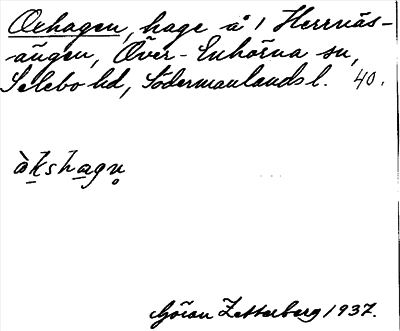 Oxhagen, hage å 1 Herrnäs-
ängen, Över-Enhörna sn,
Selebo hd, Södermanlands l. 40.
òkshagn̥
Göran Zetterberg 1937.